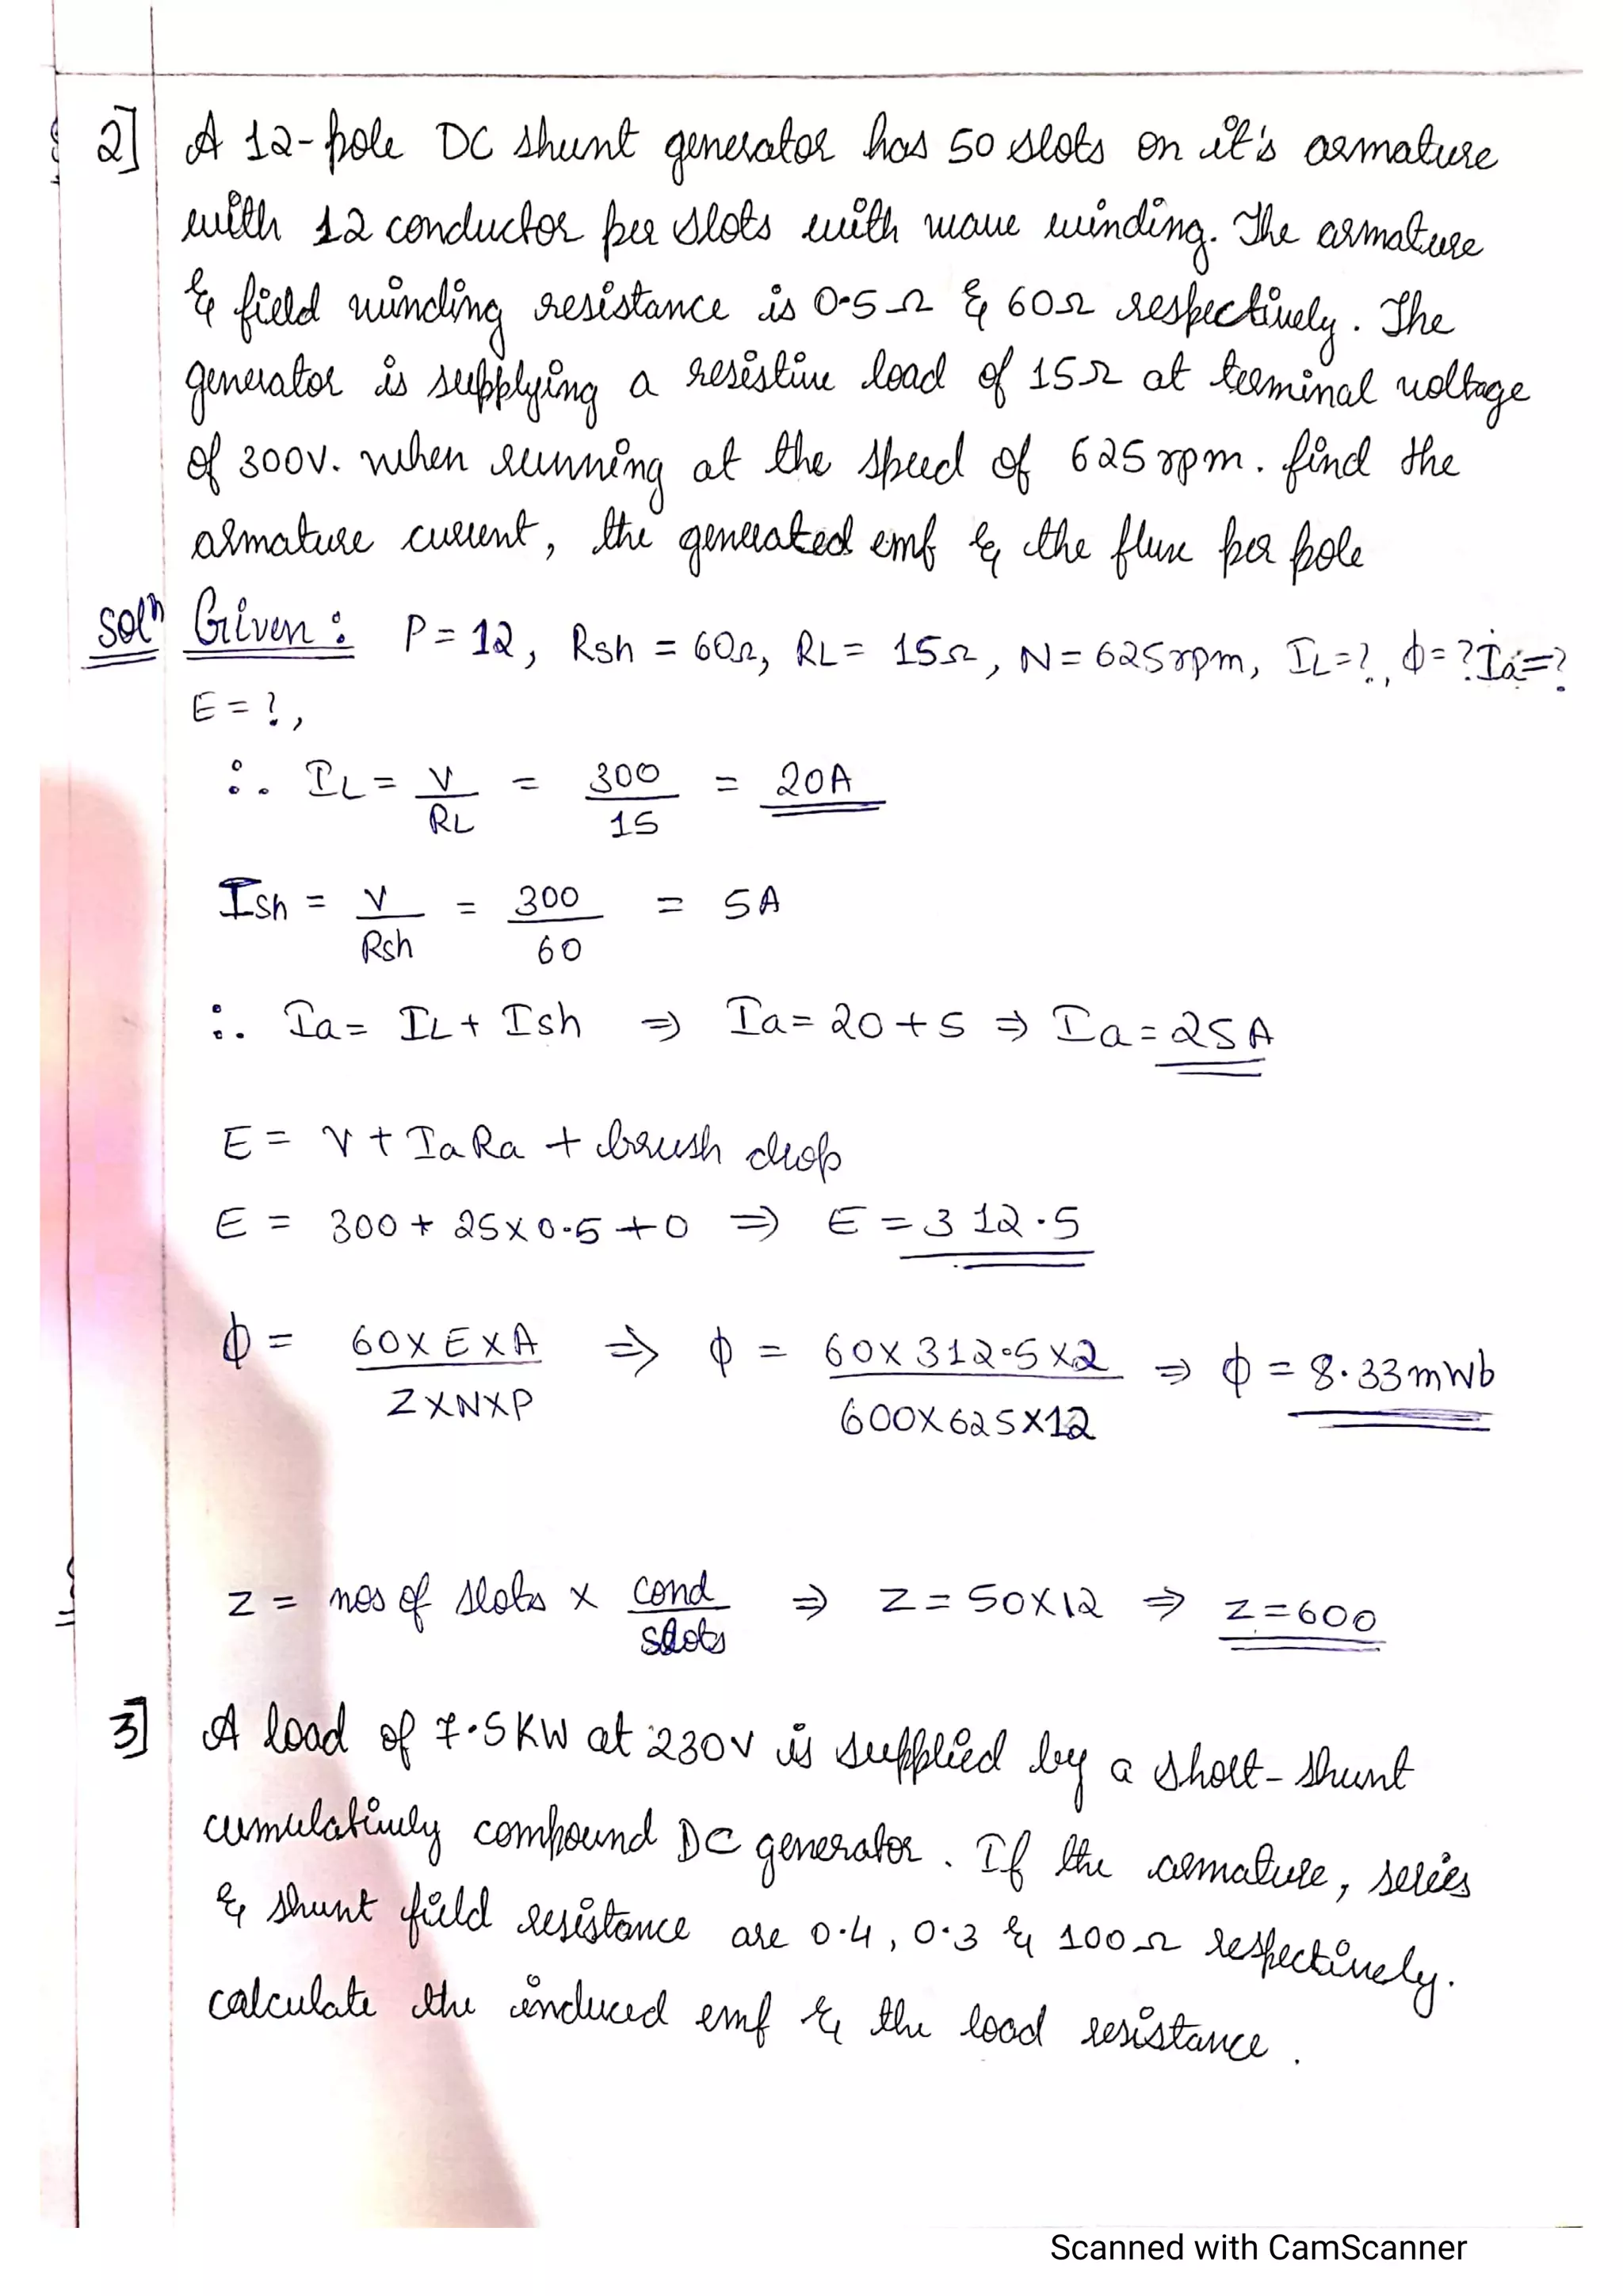 2] A 12-pole DC shunt generator has 50 slots on it's armature
with 12 conductor per slots with wave winding. The armature
& field winding resistance is 0.5Ω & 60Ω respectively. The
generator is supplying a resistive load of 15Ω at terminal voltage
of 300V. when running at the speed of 625 rpm. find the
armature current, the generated emf & the flux per pole
Solⁿ Given: P = 12, Rsh = 60Ω, RL = 15Ω, N = 625rpm, IL=?, ϕ=? Ia=?
E = ?,
∴ IL = V/RL = 300/15 = 20A
Ish = V/Rsh = 300/60 = 5A
∴ Ia = IL + Ish ⇒ Ia = 20 + 5 ⇒ Ia = 25A
E = V + IaRa + brush drop
E = 300 + 25×0.5 + 0 ⇒ E = 312.5
ϕ = 60×E×A/Z×N×P ⇒ ϕ = 60×312.5×2/600×625×12 ⇒ ϕ = 8.33mWb
Z = nos of slots × cond/slots ⇒ Z = 50×12 ⇒ Z = 600
3] A load of 7.5KW at 230V is supplied by a short-shunt
cumulatively compound DC generator. If the armature, series
& shunt field resistance are 0.4, 0.3 & 100Ω respectively.
calculate the induced emf & the load resistance.
Scanned with CamScanner